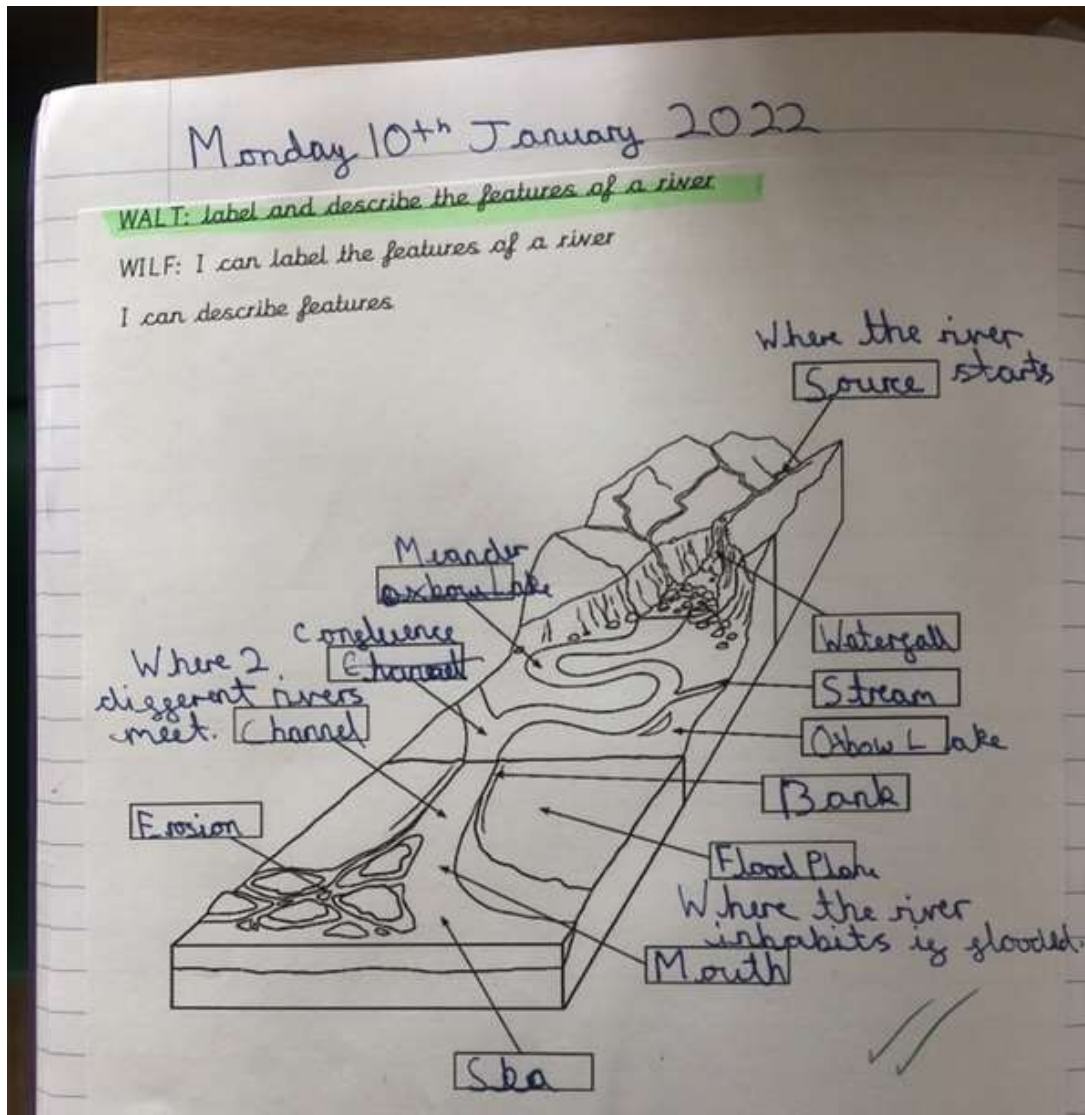 Monday 10th January 2022
WALT: label and describe the features of a river
WILF: I can label the features of a river
I can describe features
Where the river
Source starts
Meander
oxbow Lake
Confluence
Channel
Where 2
different rivers
meet. Channel
Waterfall
Stream
Oxbow Lake
Bank
Erosion
Flood Plane
Where the river
inhabits if flooded.
Mouth
Sea